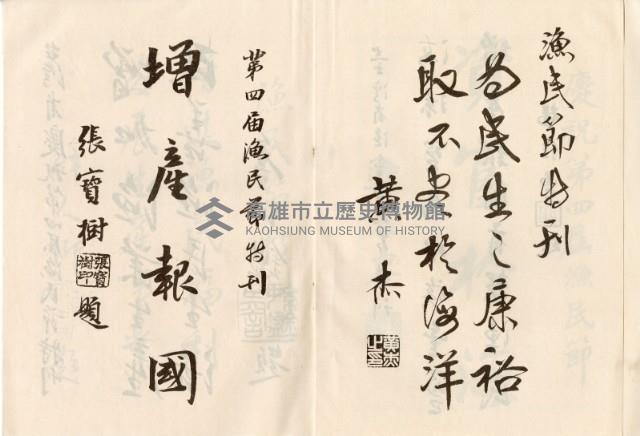 漁民節特刊
為民生之康裕
取不盡於海洋
黃杰
第四屆漁民節特刊
增產報國
張寶樹
張寶樹印
題
高雄市立歷史博物館
KAOHSIUNG MUSEUM OF HISTORY